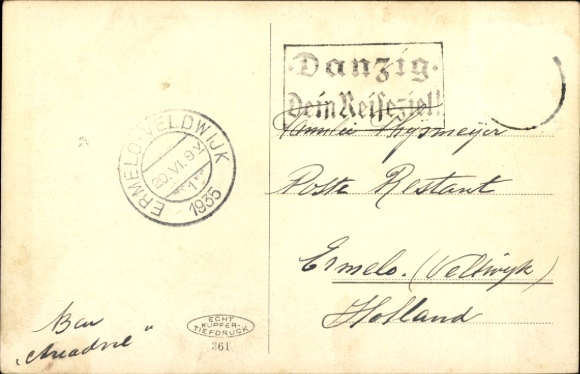 ·Danzig·
Dein Reiseziel!
ERMELO-VELDWIJK
20.VI.9
1
1935
Familie
Poste Restant
Ermelo. (Veldwyk)
Holland
"Ariadne"
ECHT
KUPFER-
TIEFDRUCK
361